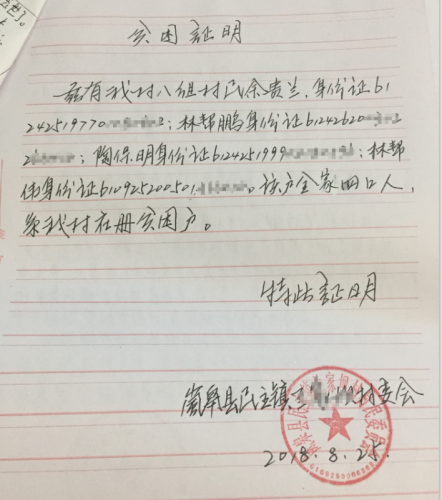 贫困証明
兹有我村八组村民余贵兰,身份证61
242519770 3;林帮鹏身份证61242620
2 ;陶保明身份证612451999 9;林帮
伟身份证610925200501 。该户全家四口人,
系我村在册贫困户。
特此証明
岚皋县民主镇 村委会
2018.8.25.